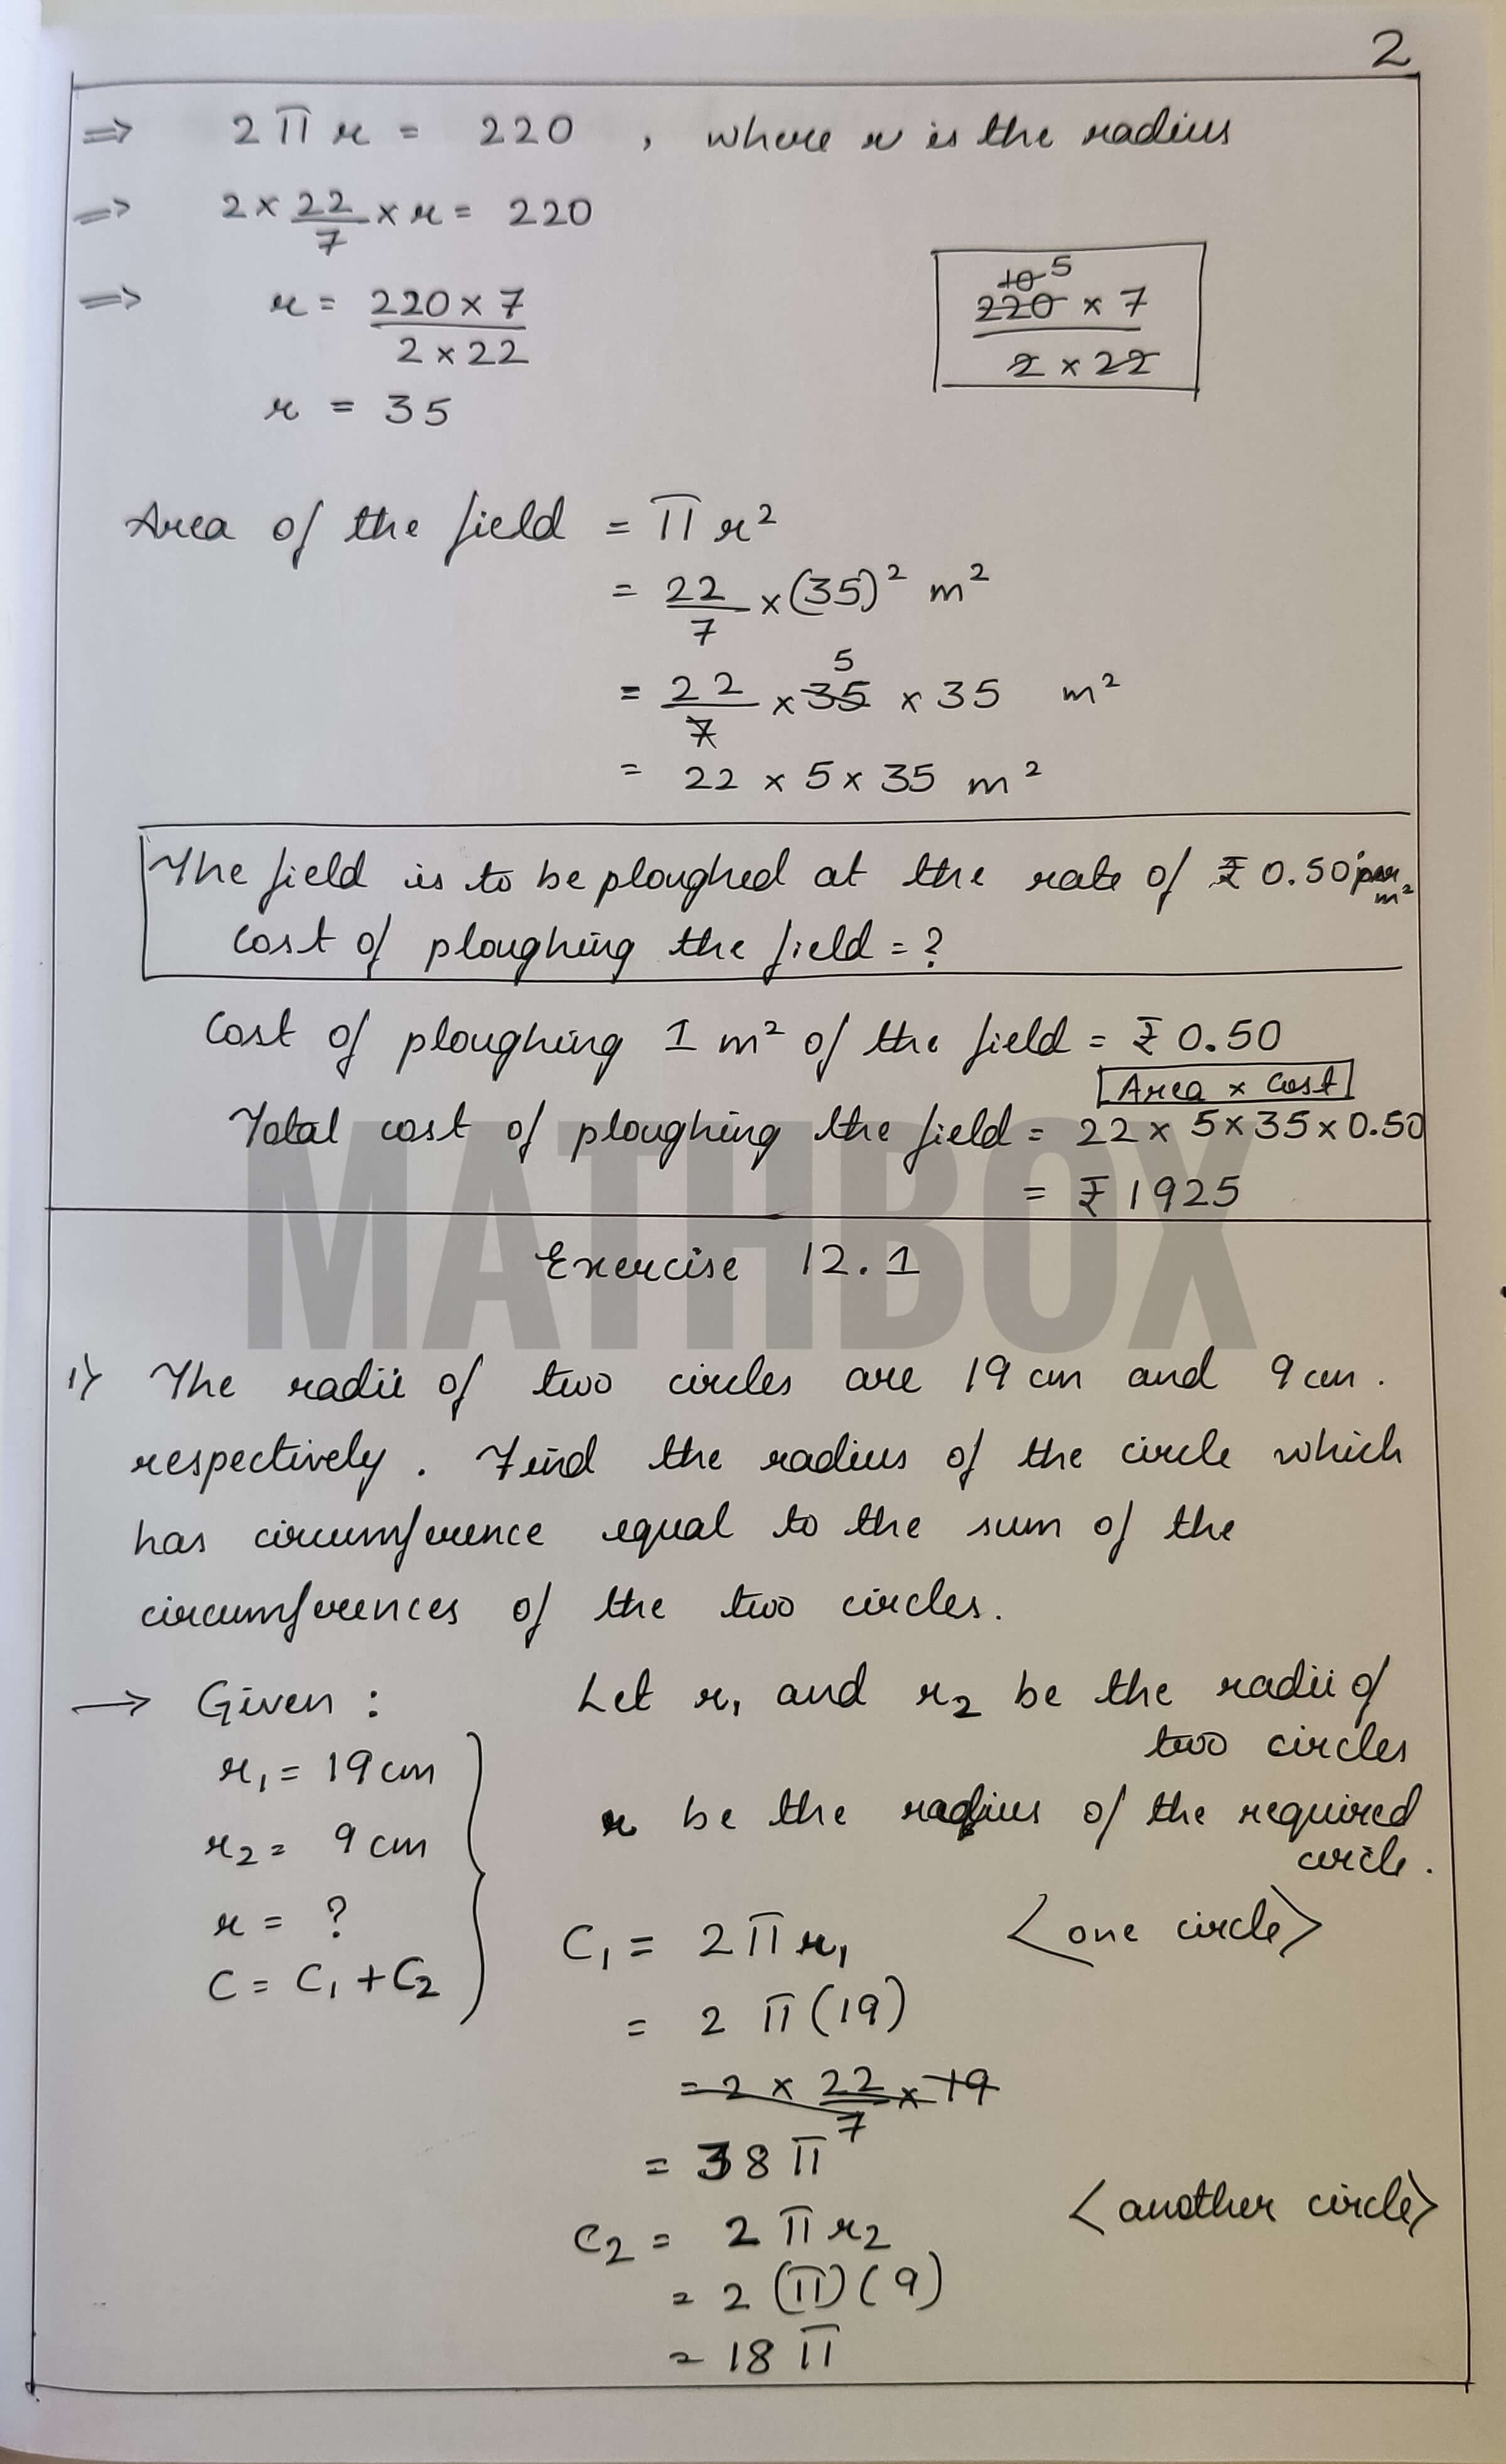 2
⇒ 2πr = 220 , where r is the radius
⇒ 2 × 22/7 × r = 220
⇒ r = 220 × 7 / 2 × 22
10 5
220 × 7 / 2 × 22
r = 35
Area of the field = πr²
= 22/7 × (35)² m²
5
= 22/7 × 35 × 35 m²
= 22 × 5 × 35 m²
The field is to be ploughed at the rate of ₹ 0.50 per m²
Cost of ploughing the field = ?
Cost of ploughing 1 m² of the field = ₹ 0.50
Area × Cost
Total cost of ploughing the field = 22 × 5 × 35 × 0.50
= ₹ 1925
MATHBOX
Exercise 12.1
1) The radii of two circles are 19 cm and 9 cm.
respectively. Find the radius of the circle which
has circumference equal to the sum of the
circumferences of the two circles.
→ Given :
r₁ = 19 cm
r₂ = 9 cm
r = ?
C = C₁ + C₂
Let r₁ and r₂ be the radii of
two circles
r be the radius of the required
circle.
C₁ = 2πr₁ <one circle>
= 2π(19)
= 2 × 22/7 × 19
= 38π
C₂ = 2πr₂ <another circle>
= 2(π)(9)
= 18π